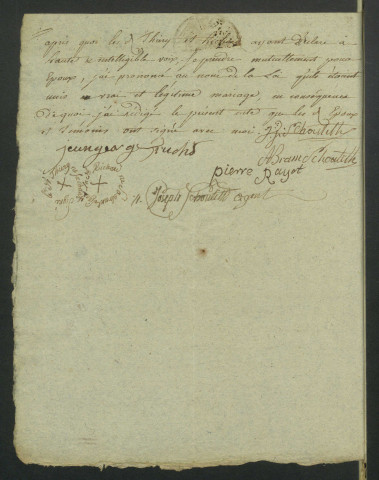 après quoi les d. Thiery et ayant déclaré à
haute & intelligible voix se prendre mutuellement pour
Epoux, j'ai prononcé au nom de la Loi qu'ils étoient
unis en vrai et legitime mariage, en conséquence
de quoi j'ai rédigé le présent acte que les d. Epoux
et temoins ont signé avec moi
jean george fuchs
Abram Schoulth
pierre Rayot
Joseph agent